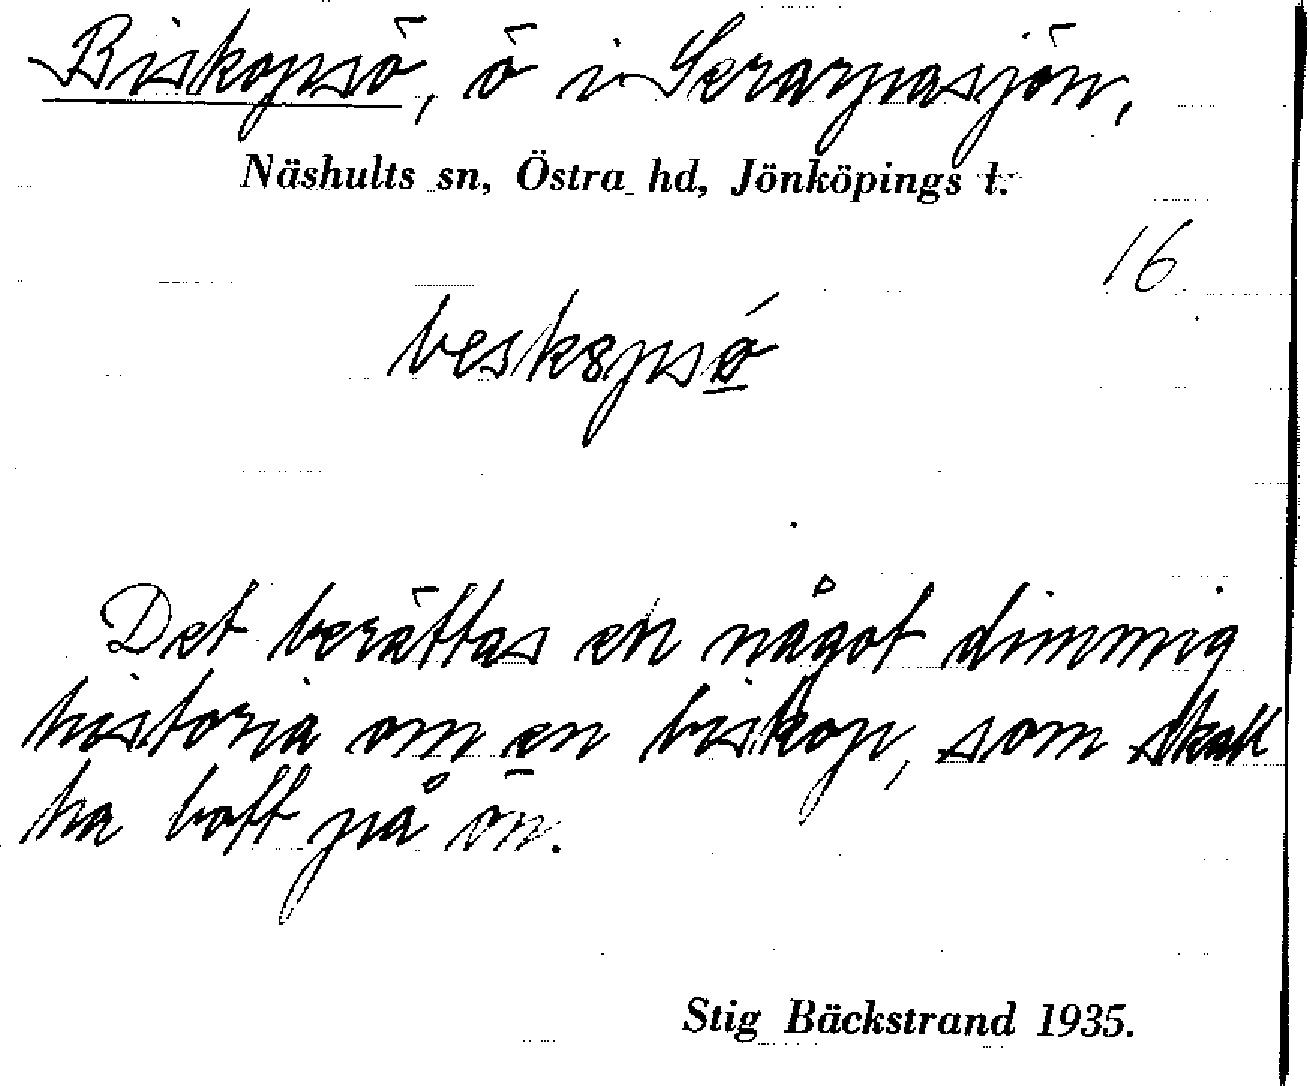 Biskopsö, ö i Serarpasjön,
Näshults sn, Östra hd, Jönköpings l.
16.
beskopsö́
Det berättas en något dimmig
historia om en biskop, som skall
ha bott på ön.
Stig Bäckstrand 1935.